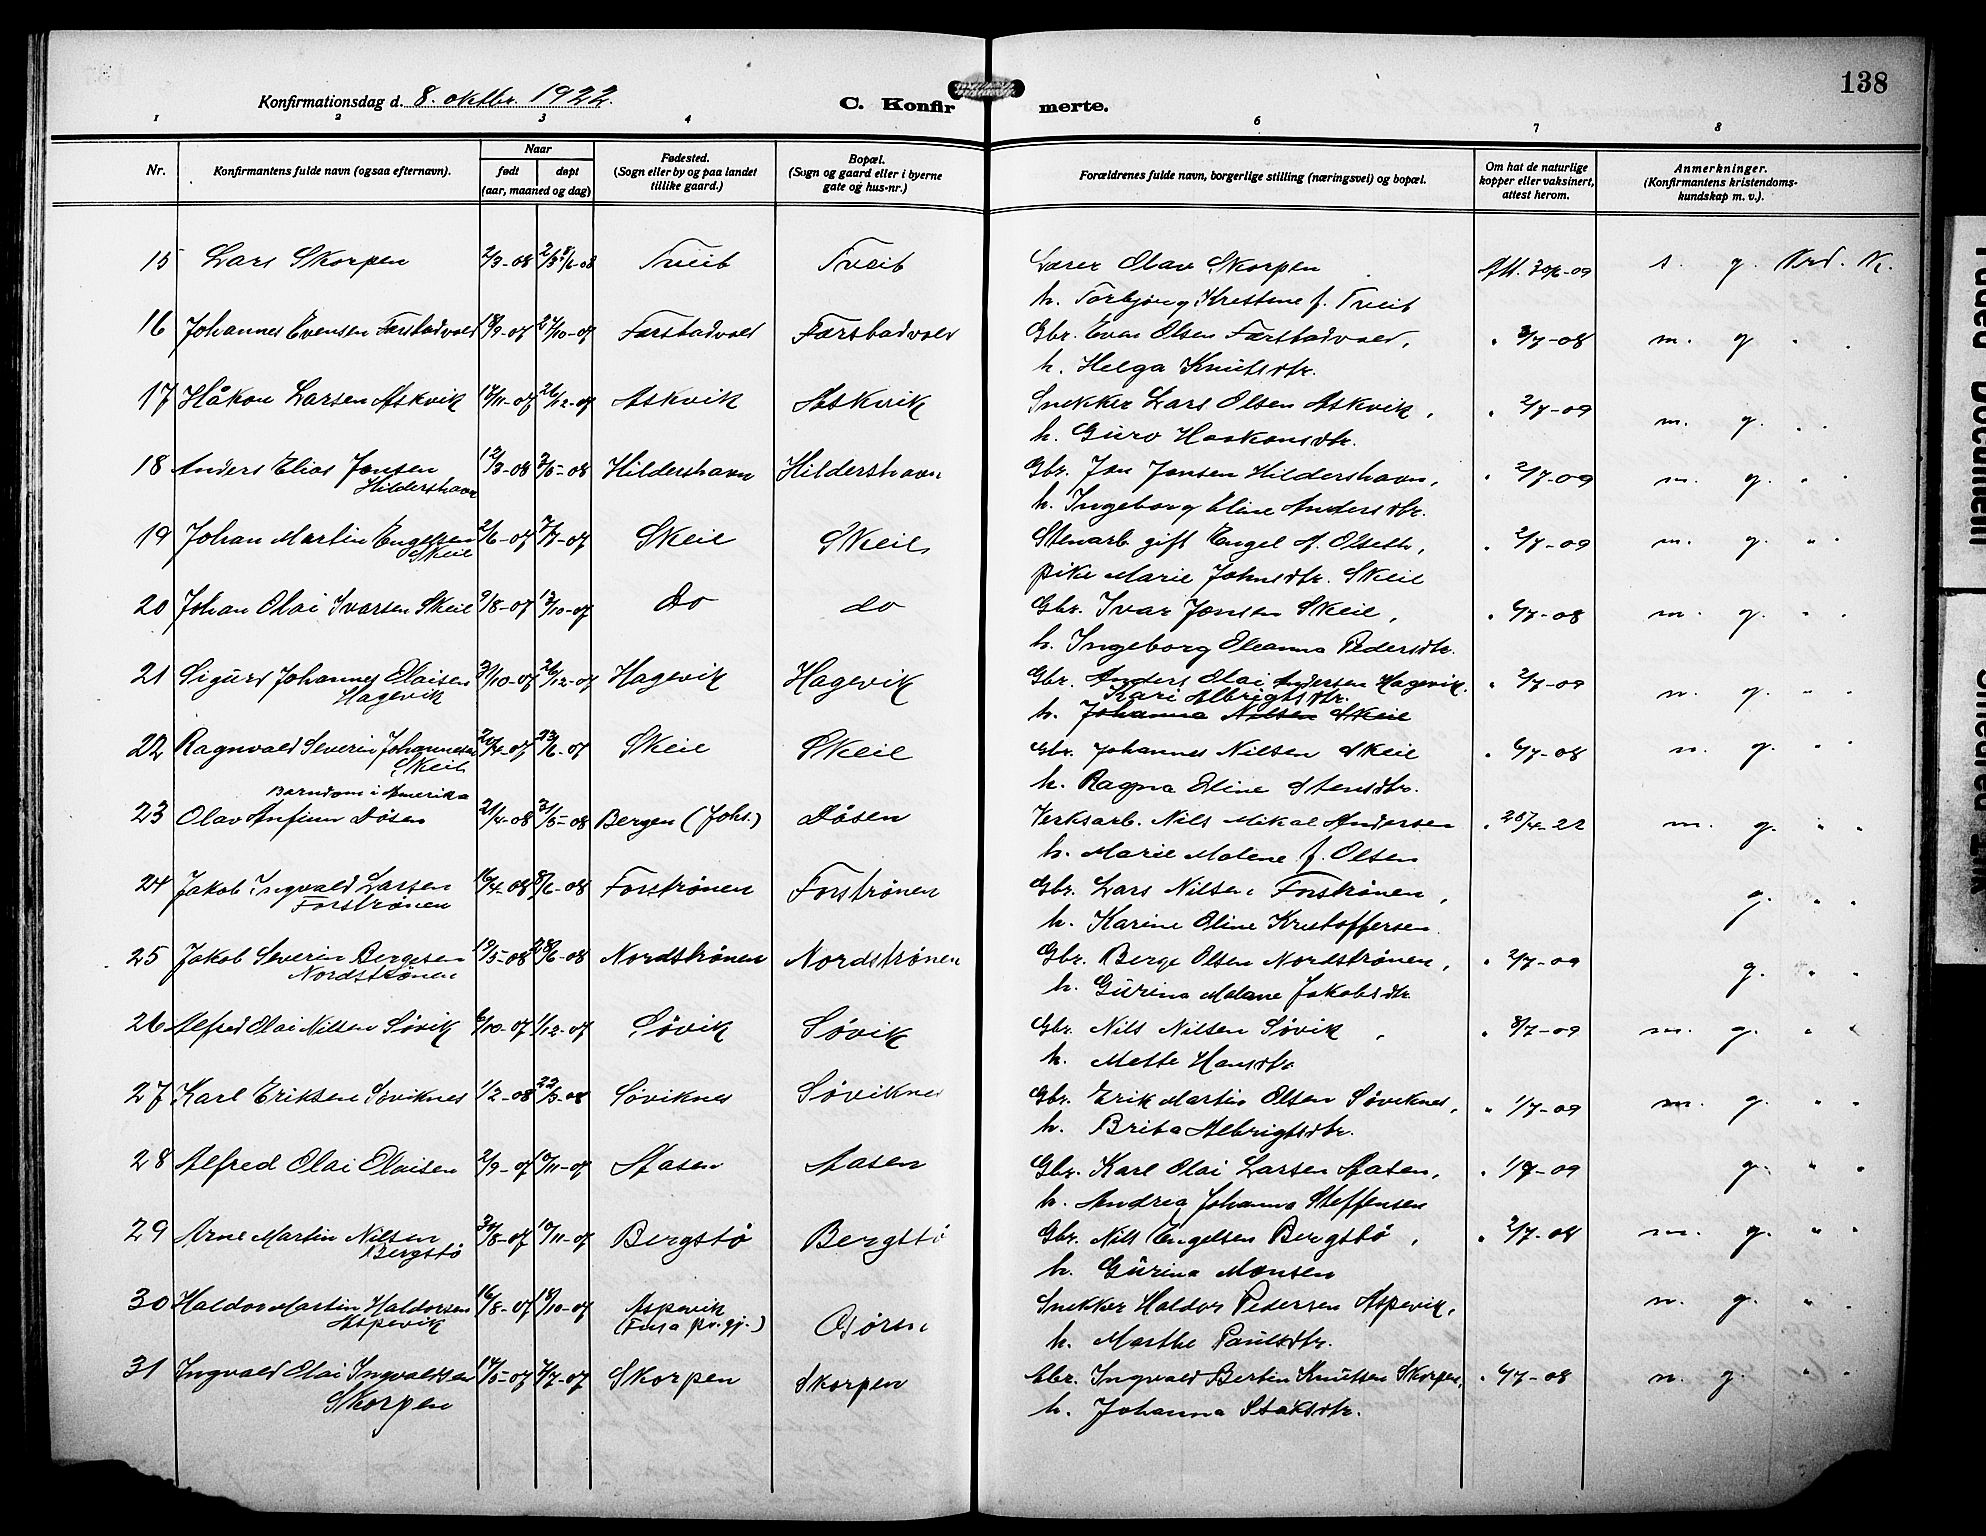 138
Konfirmationsdag d. 8. oktbr. 1922.
C. Konfirmerte.
1 2 3 4 5 6 7 8
Nr.
Konfirmantens fulde navn (ogsaa efternavn).
Naar
født døpt
(aar, maaned og dag)
Fødested.
(Sogn eller by og paa landet
tillike gaard.)
Bopæl.
(Sogn og gaard eller i byerne
gate og hus-nr.)
Forældrenes fulde navn, borgerlige stilling (næringsvei) og bopæl.
Om hat de naturlige
kopper eller vaksinert,
attest herom.
Anmerkninger.
(Konfirmantens kristendoms-
kundskap m. v.).
15 Lars Skorpen 2/3-08 Tveit Tveit Lærer Olav Skorpen s. g. Krd. K.
h. Torbjørg Kristene f. Tveit
16 Johannes Evensen Færstadvold 18/9-07 27/10-07 Færstadvold Færstadvold Gbr. Even Olsen Færstadvold, " 2/7-08 m. g. " "
h. Helga Knutsdtr.
17 Håkon Larsen Askvik 17/11-07 26/12-07 Askvik Askvik Snekker Lars Olsen Askvik, " 2/7-09 m. g. " "
h. Guro Haakonsdtr.
18 Anders Elias Jonsen 12/3-08 3/5-08 Hildershavn Hildershavn Gbr. Jon Jonsen Hildershavn, " 2/7-09 m. g. " "
Hildershavn h. Ingeborg Eline Andersdtr.
19 Johan Martin Engelsen 2/6-07 7/7-07 Skeie Skeie Stenarb. gift Engel A. Olseth, " 2/7-09 m. g. " "
Skeie pike Marie Johnsdtr. Skeie
20 Johan Olai Ivarsen Skeie 9/8-07 13/10-07 do do Gbr. Ivar Jonsen Skeie, " 6/7-08 m. g. " "
h. Ingeborg Oleanna Pedersdtr.
21 Sigurd Johannes Olaisen 31/10-07 26/12-07 Hagevik Hagevik Gbr. Anders Olai Andersen Hagevik. " 2/7-09 n. g. " "
Hagevik Kari Albrigtsdtr.
h. Johanna Nilsen Skeie
22 Ragnvald Severin Johannesen 20/4-07 23/6-07 Skeie Skeie Gbr. Johannes Nilsen Skeie " 6/7-08 n. g. " "
Skeie h. Ragna Eline Stensdtr.
Barndom i Amerika
23 Olav Anfinn Døsen 21/4-08 31/5-08 Bergen (Johs.) Døsen Verksarb. Nils Mikal Andersen " 25/4-22 m. g. " "
h. Marie Malene f. Olsen
24 Jakob Ingvald Larsen 16/4-08 8/6-08 Forstrønen Forstrønen Gbr. Lars Nilsen Forstrønen, g. " "
Forstrønen h. Karine Oline Kristoffersen
25 Jakob Severin Bergesen 19/5-08 28/6-08 Nordstrønen Nordstrønen Gbr. Berge Olsen Nordstrønen, " 2/7-09 g. " "
Nordstrønen h. Gurina Malene Jakobsdtr.
26 Alfred Olai Nilsen Søvik 6/10-07 1/12-07 Søvik Søvik Gbr. Nils Nilsen Søvik, " 8/7-09 m. g. " "
h. Mette Hansdtr.
27 Karl Eriksen Søviknes 1/2-08 22/3-08 Søviknes Søviknes Gbr. Erik Martin Olsen Søviknes, " 1/7-09 m. g. " "
h. Brita Albrigtsdtr.
28 Alfred Olai Olaisen 2/9-07 10/11-07 Aasen Aasen Gbr. Karl Olai Larsen Aasen, " g. " "
h. Andrea Johanna Steffensen
29 Arne Martin Nilsen 30/8-07 10/11-07 Bergstø Bergstø Gbr. Nils Engelsen Bergstø, " 2/7-08 m. g. " "
Bergstø h. Gurina Monsen
30 Haldor Martin Haldorsen 16/8-07 18/10-07 Aspevik Snekker Haldor Pedersen Aspevik, n. g. " "
Aspevik (Fusa pr.gj.) h. Marthe Paulsdtr.
31 Ingvald Olai Ingvaldsen 17/5-07 7/7-07 Skorpen Skorpen Gbr. Ingvald Bertin Knutsen Skorpen, " 6/7-08 n. g. " "
Skorpen h. Johanna